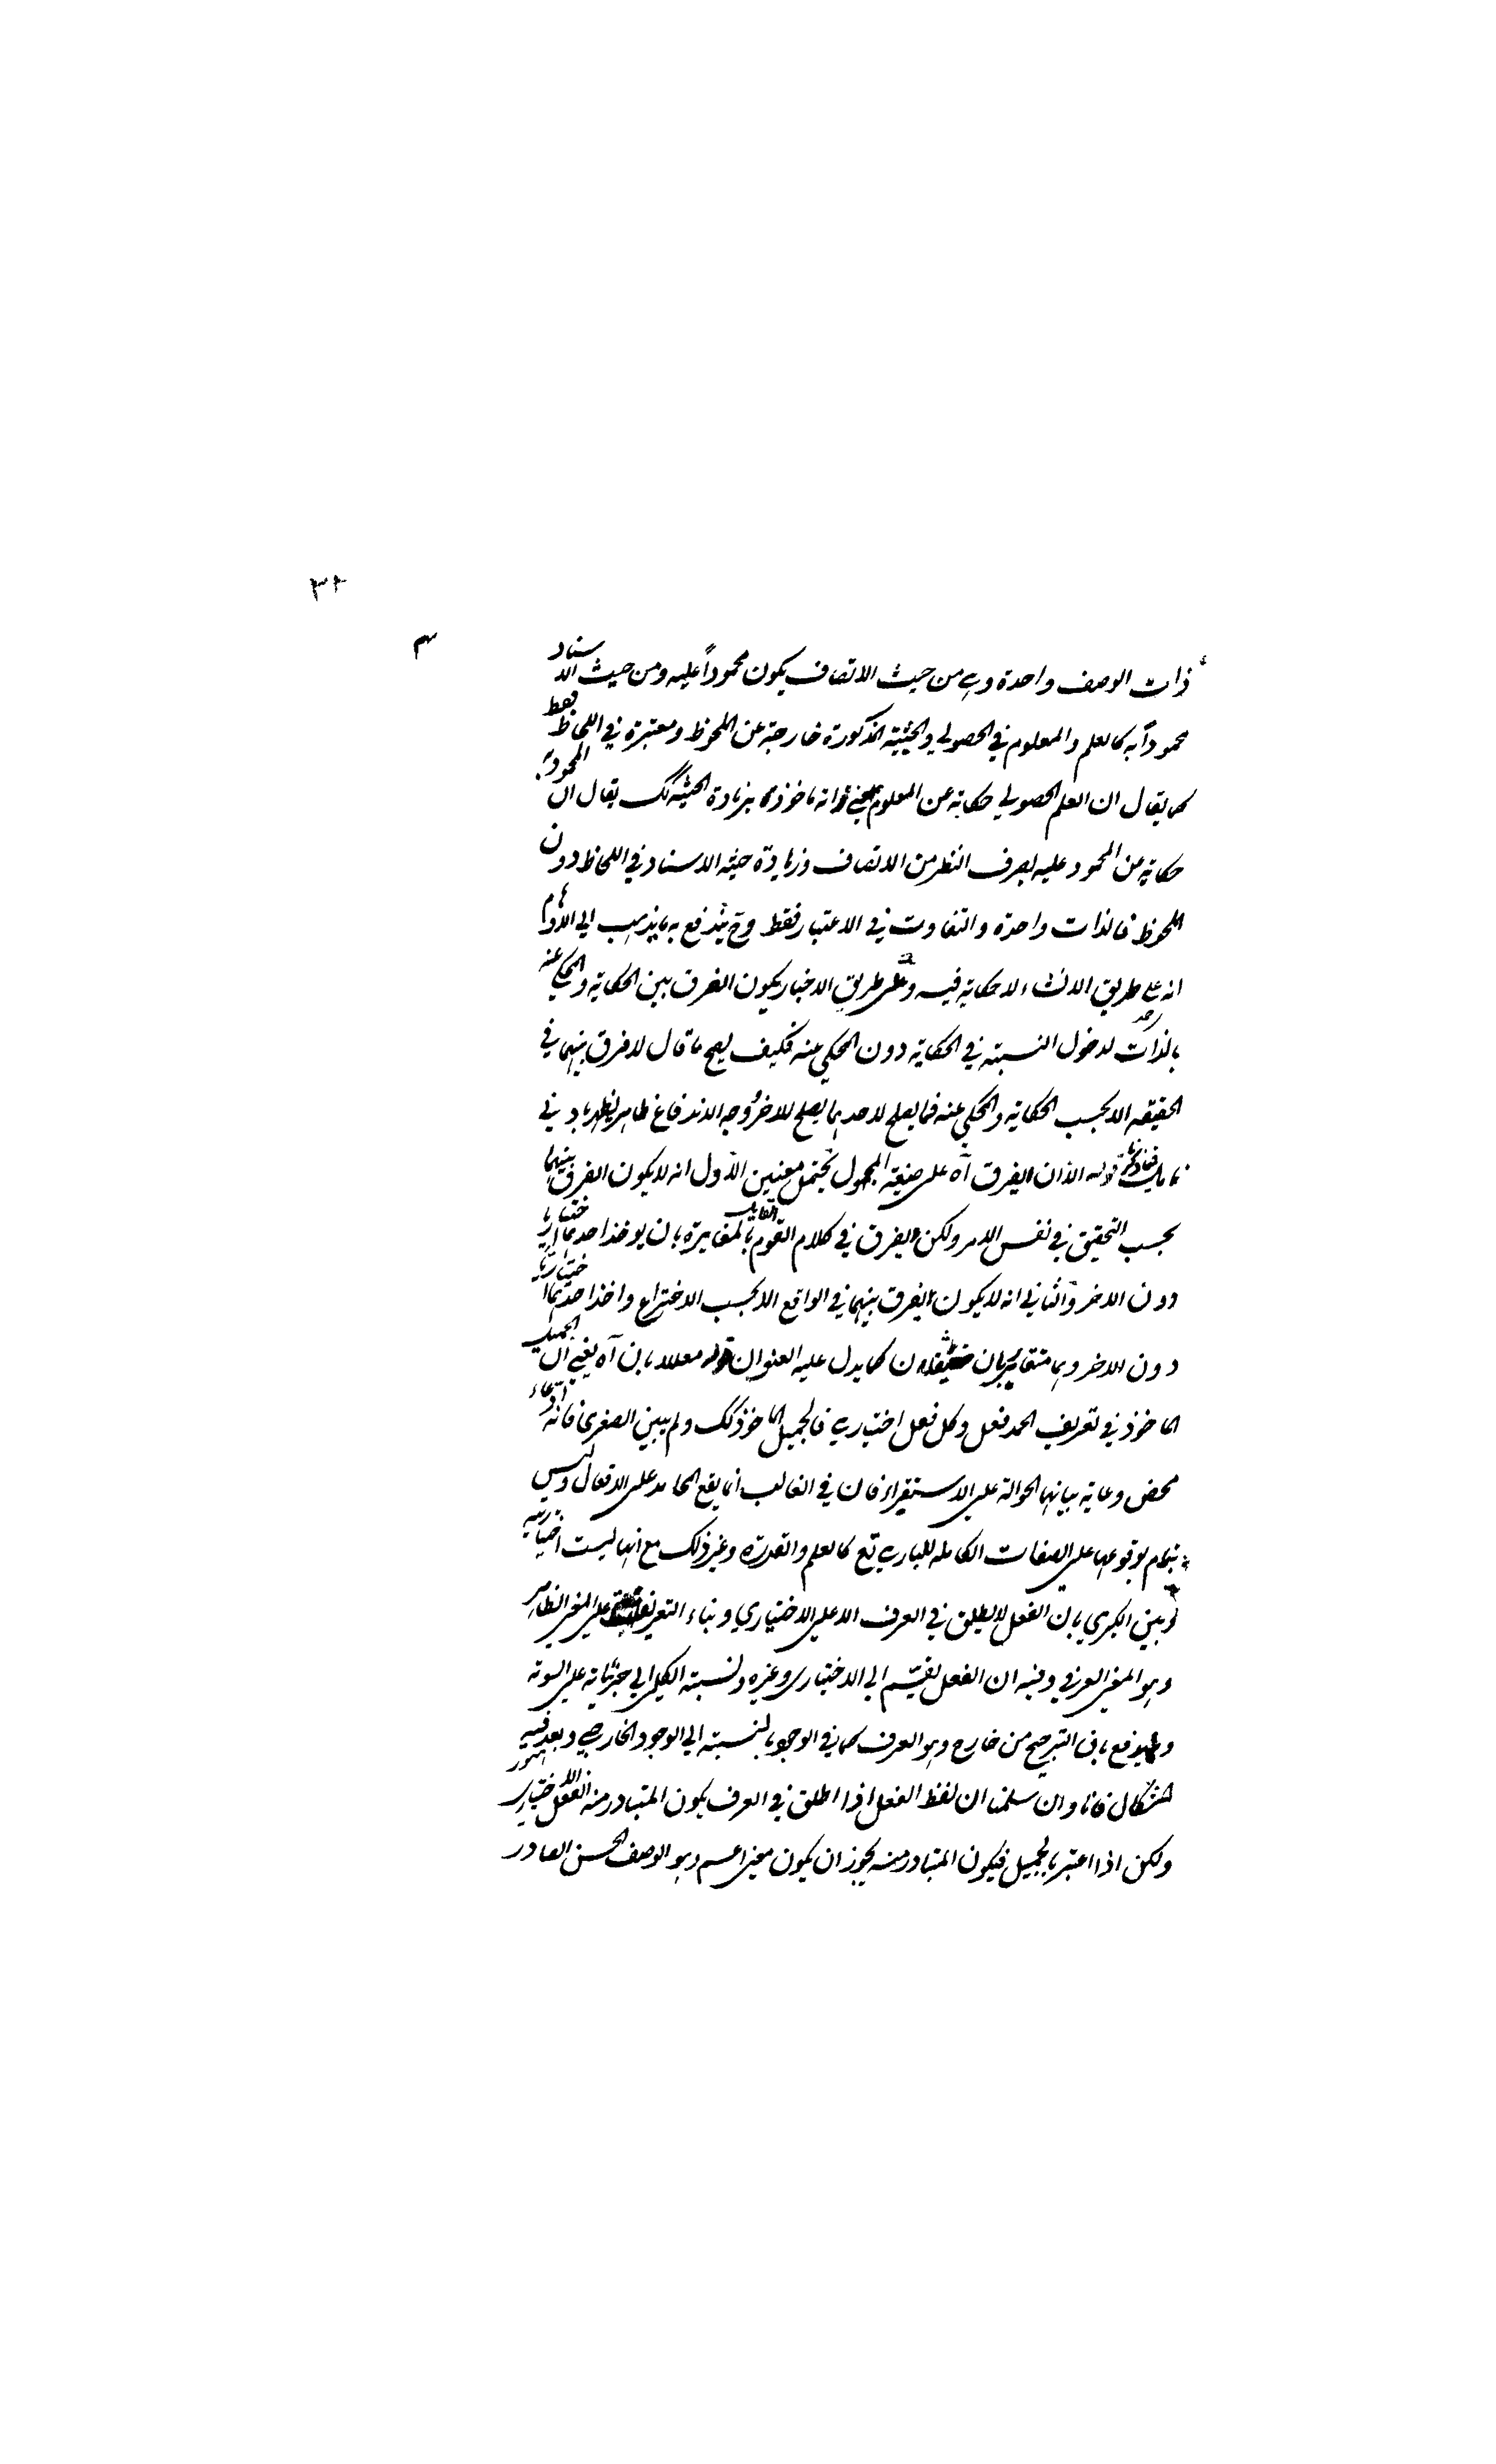 ٣٢
٣
ذات الوصف واحدة وهي من حيث الاتصاف يكون محموداً عليه ومن حيث الاسناد
محموداً به كالعلم والمعلوم في الحصولي والحيثية المذكورة خارجة عن الملحوظ ومعتبرة في اللحاظ فقط
كما يقال ان العلم الحصولي حكاية عن المعلوم بمعنى انه ماخوذ بزيادة الحيثية كك يقال ان المحمود به
حكاية عن المحمود عليه بصرف النظر من الاتصاف وزيادة حيثية الاسناد في اللحاظ دون
الملحوظ فالذات واحدة والتفاوت في الاعتبار فقط وح يندفع به ما يذهب الي الاوهام
انه علي طريق الانشاء لا حكاية فيه وعلى طريق الاخبار يكون الفرق بين الحكاية والمحكي عنه
بالذات لدخول النسبة في الحكاية دون المحكي عنه فكيف يصح ما قال لا فرق بينهما في
الحقيقة الا بحسب الحكاية والمحكي عنه فما يصلح لاحدهما يصلح للاخر ووجه الاندفاع ظاهر يظهر بادني
تامل فيما ذكرنا قوله الا ان الفرق آه على صيغة المجهول يحتمل معنيين الاول انه لا يكون الفرق بينهما
بحسب التحقيق في نفس الامر ولكن الفرق في كلام القوم القائل بالمغايرة بان يوخذ احدهما اختياريا
دون الاخر والثاني انه لا يكون الفرق بينهما في الواقع الا بحسب الاختراع واخذ احدهما اختياريا
دون الاخر وهما متغايران كما يدل عليه العنوان قوله معللا بان آه يعني ان الجميل
الماخوذ في تعريف الحمد فعل وكل فعل اختياري فالجميل الماخوذ كك ولم يبين الصغرى فانه ادعاء
محض وغاية بيانها الحوالة علي الاستقراء فان في الغالب انما يقع المحامد على الافعال وليس
بتمام لوقوعها علي الصفات الكاملة للباري تع كالعلم والقدرة وغير ذلك مع انها ليست اختيارية
وبين الكبري بان الفعل لا يطلق في العرف الا علي الاختياري وبناء التعريف علي المعنى الظاهر
وهو المعني العرفي وفيه ان الفعل يقسم الي الاختياري وغيره ونسبة الكلي الي جزئياته علي السوية
ويدفع بان الترجيح من خارج وهو العرف كما في الوجود بالنسبة الي الوجود الخارجي وبعد فيه
اشكال فانا وان سلمنا ان لفظ الفعل اذا اطلق في العرف يكون المتبادر منه الفعل الاختياري
ولكن اذا اعتبر بالجميل فيكون المتبادر منه يجوز ان يكون معنى اعم وهو الوصف الحسن الصادر